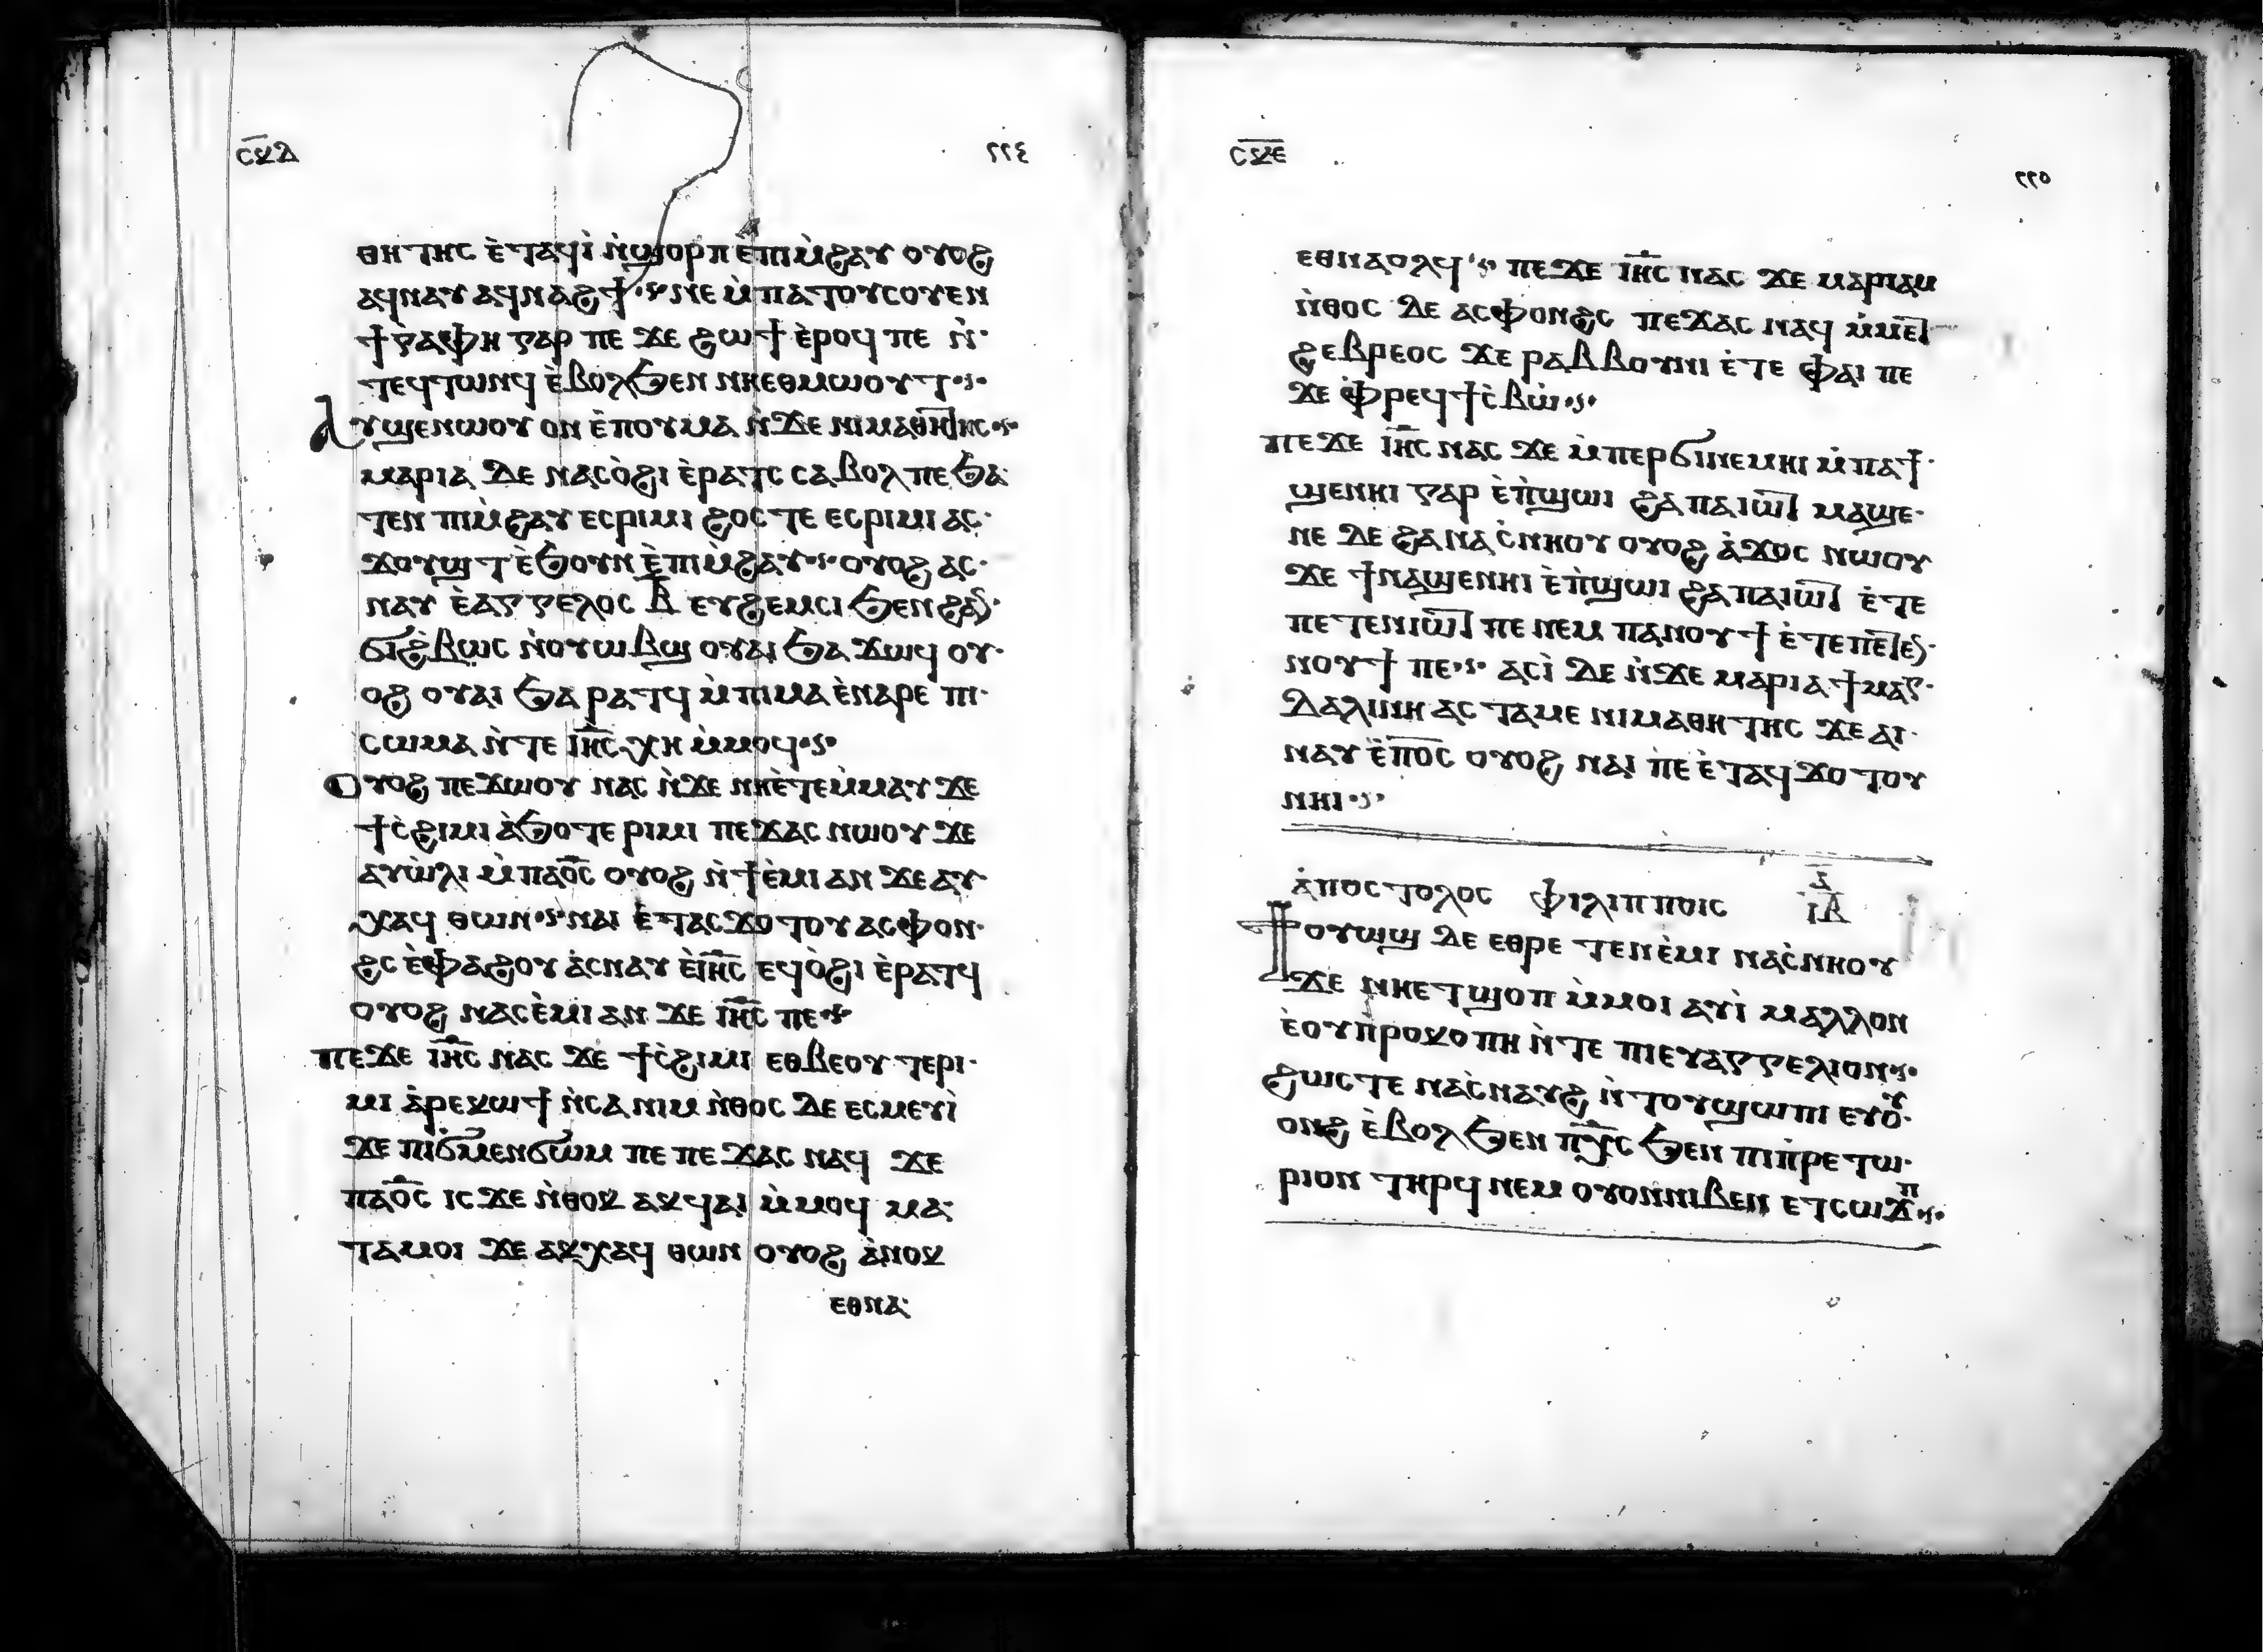 ⲥ̅ⲕ̅ⲇ ٢٢٤
ⲑⲏⲧⲏⲥ ⲉ̀ⲧⲁϥⲓ̀ ⲛ̀ϣⲟⲣⲡ ⲉ̀ⲡⲓⲙ̀ϩⲁⲩ ⲟⲩⲟϩ
ⲁϥⲛⲁⲩ ⲁϥⲛⲁϩϯ·ⲋ· ⲛⲉ ⲙ̀ⲡⲁⲧⲟⲩⲥⲟⲩⲉⲛ
ϯⲅ̀ⲣⲁⲫⲏ ⲅⲁⲣ ⲡⲉ ϫⲉ ϩⲱϯ ⲉ̀ⲣⲟϥ ⲡⲉ ⲛ̀·
ⲧⲉϥⲧⲱⲛϥ ⲉ̀ⲃⲟⲗϧⲉⲛ ⲛⲏⲉⲑⲙⲱⲟⲩⲧ·ⲋ·
ⲁⲩϣⲉⲛⲱⲟⲩ ⲟⲛ ⲉ̀ⲡⲟⲩⲙⲁ ⲛ̀ϫⲉ ⲛⲓⲙⲁⲑⲏⲧⲏⲥ·ⲋ·
ⲙⲁⲣⲓⲁ ⲇⲉ ⲛⲁⲥⲟ̀ϩⲓ ⲉ̀ⲣⲁⲧⲥ ⲥⲁⲃⲟⲗ ⲡⲉ ϧⲁ·
ⲧⲉⲛ ⲡⲓⲙ̀ϩⲁⲩ ⲉⲥⲣⲓⲙⲓ ϩⲟⲥⲧⲉ ⲉⲥⲣⲓⲙⲓ ⲁⲥ·
ϫⲟⲩϣⲧ ⲉ̀ϧⲟⲩⲛ ⲉ̀ⲡⲓⲙ̀ϩⲁⲩ·ⲋ· ⲟⲩⲟϩ ⲁⲥ·
ⲛⲁⲩ ⲉ̀ⲁⲅⲅⲉⲗⲟⲥ ⲃ̅ ⲉⲩϩⲉⲙⲥⲓ ϧⲉⲛ ϩⲁⲛ·
ϭⲓϩ̀ⲃⲱⲥ ⲛ̀ⲟⲩⲱⲃϣ ⲟⲩⲁⲓ ϧⲁ ϫⲱϥ ⲟⲩ·
ⲟϩ ⲟⲩⲁⲓ ϧⲁ ⲣⲁⲧϥ ⲙ̀ⲡⲓⲙⲁ ⲉ̀ⲛⲁⲣⲉ ⲡⲓ·
ⲥⲱⲙⲁ ⲛ̀ⲧⲉ ⲓⲏ̅ⲥ ⲭⲏ ⲙ̀ⲙⲟϥ·ⲋ·
ⲟⲩⲟϩ ⲡⲉϫⲱⲟⲩ ⲛⲁⲥ ⲛ̀ϫⲉ ⲛⲏⲉ̀ⲧⲉⲙ̀ⲙⲁⲩ ϫⲉ
ϯⲥ̀ϩⲓⲙⲓ ⲁ̀ϧⲟ ⲧⲉ ⲣⲓⲙⲓ ⲡⲉϫⲁⲥ ⲛⲱⲟⲩ ϫⲉ
ⲁⲩⲱ̀ⲗⲓ ⲙ̀ⲡⲁⲟ̅ⲥ ⲟⲩⲟϩ ⲛ̀ϯⲉ̀ⲙⲓ ⲁⲛ ϫⲉ ⲁⲩ
ⲭⲁϥ ⲑⲱⲛ·ⲋ· ⲛⲁⲓ ⲉ̀ⲧⲁⲥϫⲟⲧⲟⲩ ⲁⲥⲫⲟⲛ·
ϩⲥ ⲉ̀ⲫⲁϩⲟⲩ ⲁ̀ⲥⲛⲁⲩ ⲉ̀ⲓⲏ̅ⲥ ⲉϥⲟ̀ϩⲓ ⲉ̀ⲣⲁⲧϥ
ⲟⲩⲟϩ ⲛⲁⲥⲉ̀ⲙⲓ ⲁⲛ ϫⲉ ⲓⲏ̅ⲥ ⲡⲉ·ⲋ·
ⲡⲉϫⲉ ⲓⲏ̅ⲥ ⲛⲁⲥ ϫⲉ ϯⲥ̀ϩⲓⲙⲓ ⲉⲑⲃⲉⲟⲩ ⲧⲉⲣⲓ·
ⲙⲓ ⲁ̀ⲣⲉⲕⲱϯ ⲛ̀ⲥⲁ ⲛⲓⲙ ⲛ̀ⲑⲟⲥ ⲇⲉ ⲉⲥⲙⲉⲩⲓ̀
ϫⲉ ⲡⲓϭⲙⲉⲛϭⲱⲙ ⲡⲉ ⲡⲉϫⲁⲥ ⲛⲁϥ ϫⲉ
ⲡⲁⲟ̅ⲥ ⲓⲥϫⲉ ⲛ̀ⲑⲟⲕ ⲁⲕϥⲁⲓ ⲙ̀ⲙⲟϥ ⲙⲁ·
ⲧⲁⲙⲟⲓ ϫⲉ ⲁⲕⲭⲁϥ ⲑⲱⲛ ⲟⲩⲟϩ ⲁ̀ⲛⲟⲕ
ⲉⲑⲛⲁ·
ⲥ̅ⲕ̅ⲉ̅ ٢٢٥
ⲉⲑⲛⲁⲟⲗϥ·ⲋ· ⲡⲉϫⲉ ⲓⲏ̅ⲥ ⲛⲁⲥ ϫⲉ ⲙⲁⲣⲓⲁⲙ
ⲛ̀ⲑⲟⲥ ⲇⲉ ⲁⲥⲫⲟⲛϩⲥ ⲡⲉϫⲁⲥ ⲛⲁϥ ⲙ̀ⲙⲉⲧ
ϩⲉⲃⲣⲉⲟⲥ ϫⲉ ⲣⲁⲃⲃⲟⲩⲛⲓ ⲉ̀ⲧⲉ ⲫⲁⲓ ⲡⲉ
ϫⲉ ⲫ̀ⲣⲉϥϯⲥ̀ⲃⲱ̀·ⲋ·
ⲡⲉϫⲉ ⲓⲏ̅ⲥ ⲛⲁⲥ ϫⲉ ⲙ̀ⲡⲉⲣϭⲓⲛⲉⲙⲏⲓ ⲙ̀ⲡⲁϯ·
ϣⲉⲛⲏⲓ ⲅⲁⲣ ⲉ̀ⲡ̀ϣⲱⲓ ϩⲁ ⲡⲁⲓⲱⲧ ⲙⲁϣⲉ·
ⲛⲉ ⲇⲉ ϩⲁ ⲛⲁⲥ̀ⲛⲏⲟⲩ ⲟⲩⲟϩ ⲁ̀ϫⲟⲥ ⲛⲱⲟⲩ
ϫⲉ ϯⲛⲁϣⲉⲛⲏⲓ ⲉ̀ⲡ̀ϣⲱⲓ ϩⲁ ⲡⲁⲓⲱⲧ ⲉ̀ⲧⲉ
ⲡⲉⲧⲉⲛⲓⲱⲧ ⲡⲉ ⲛⲉⲙ ⲡⲁⲛⲟⲩϯ ⲉ̀ⲧⲉ ⲡⲉⲧⲉⲛ·
ⲛⲟⲩϯ ⲡⲉ·ⲋ· ⲁⲥⲓ̀ ⲇⲉ ⲛ̀ϫⲉ ⲙⲁⲣⲓⲁ ϯⲙⲁⲅ·
ⲇⲁⲗⲓⲛⲏ ⲁⲥⲧⲁⲙⲉ ⲛⲓⲙⲁⲑⲏⲧⲏⲥ ϫⲉ ⲁⲓ·
ⲛⲁⲩ ⲉ̀ⲡⲟ̅ⲥ ⲟⲩⲟϩ ⲛⲁⲓ ⲡⲉ ⲉ̀ⲧⲁϥϫⲟⲧⲟⲩ
ⲛⲏⲓ·ⲋ·
ⲁ̀ⲡⲟⲥⲧⲟⲗⲟⲥ ⲫⲓⲗⲓⲡⲡⲟⲓⲥ ⲁ̅ ⲓ̅ⲃ̅
ϯⲟⲩⲱϣ ⲇⲉ ⲉⲑⲣⲉⲧⲉⲛⲉ̀ⲙⲓ ⲛⲁⲥ̀ⲛⲏⲟⲩ
ϫⲉ ⲛⲏⲉⲧϣⲟⲡ ⲙ̀ⲙⲟⲓ ⲁⲩⲓ̀ ⲙⲁⲗⲗⲟⲛ
ⲉ̀ⲟⲩⲡ̀ⲣⲟⲕⲟⲡⲏ ⲛ̀ⲧⲉ ⲡⲓⲉⲩⲁⲅⲅⲉⲗⲓⲟⲛ·ⲋ·
ϩⲱⲥⲧⲉ ⲛⲁⲥ̀ⲛⲁⲩϩ ⲛ̀ⲧⲟⲩϣⲱⲡⲓ ⲉⲩⲟⲩ·
ⲟⲛϩ ⲉ̀ⲃⲟⲗϧⲉⲛ ⲡⲭ̅ⲥ ϧⲉⲛ ⲡⲓⲡ̀ⲣⲉⲧⲱ·
ⲣⲓⲟⲛ ⲧⲏⲣϥ ⲛⲉⲙ ⲟⲩⲟⲛⲛⲓⲃⲉⲛ ⲉⲧⲥⲱϫⲡ·ⲋ·